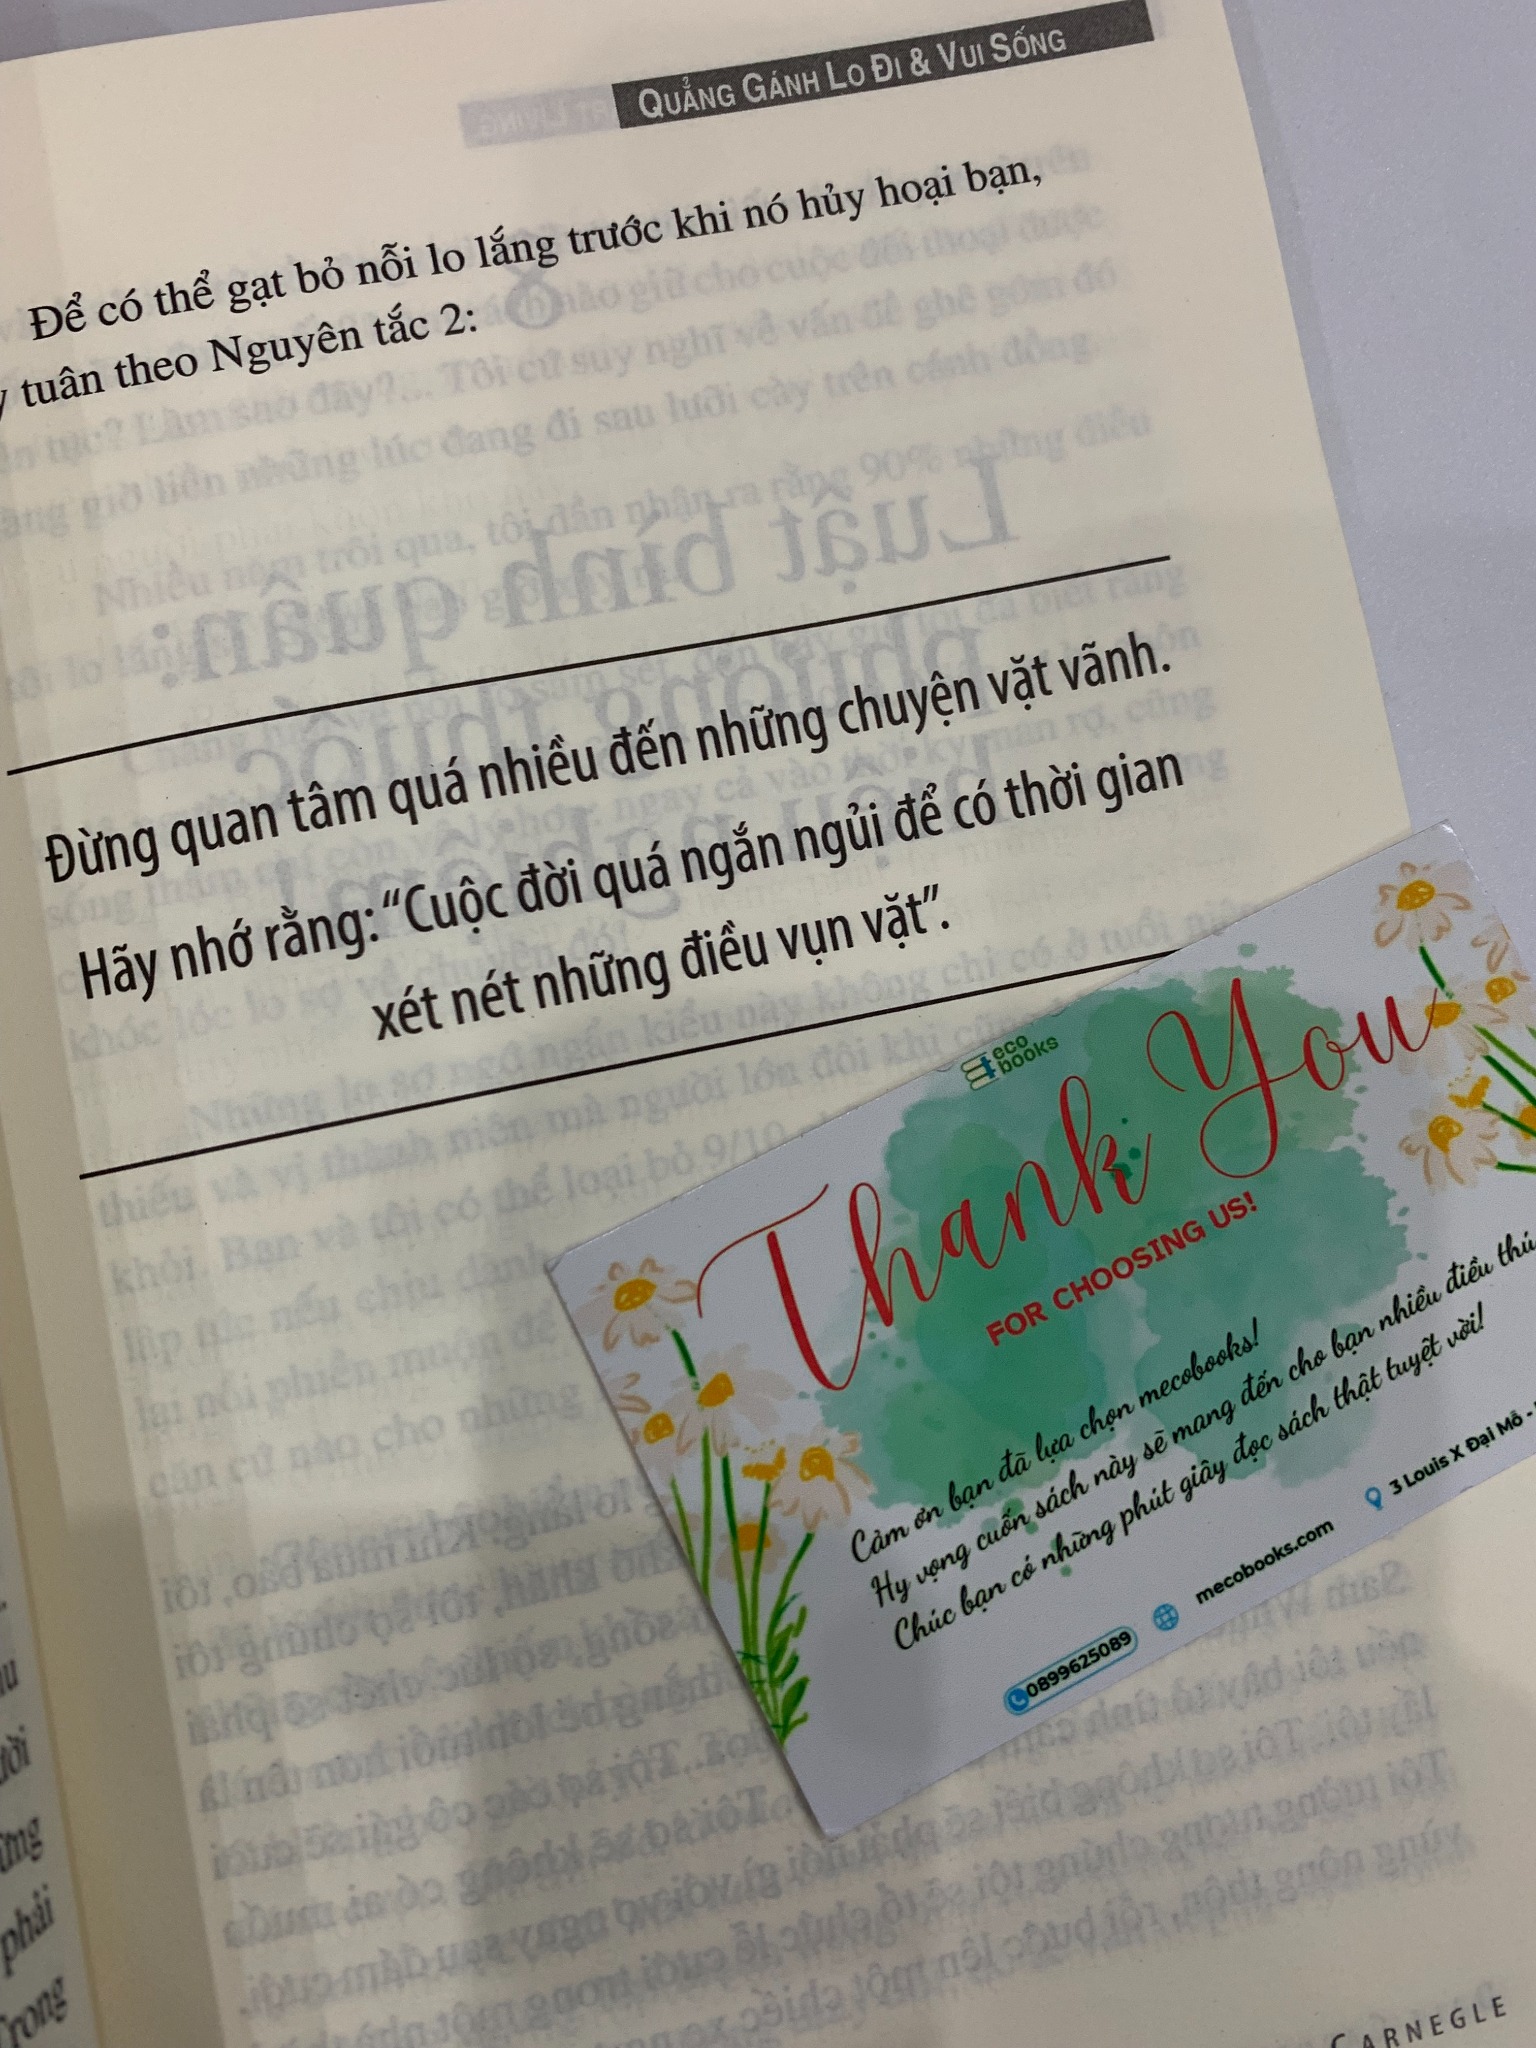 QUẲNG GÁNH LO ĐI & VUI SỐNG
Để có thể gạt bỏ nỗi lo lắng trước khi nó hủy hoại bạn,
tuân theo Nguyên tắc 2:
Đừng quan tâm quá nhiều đến những chuyện vặt vãnh.
Hãy nhớ rằng: “Cuộc đời quá ngắn ngủi để có thời gian
xét nét những điều vụn vặt”.
eco
books
Thank You
FOR CHOOSING US!
Cảm ơn bạn đã lựa chọn mecobooks!
Hy vọng cuốn sách này sẽ mang đến cho bạn nhiều điều thú
Chúc bạn có những phút giây đọc sách thật tuyệt vời!
0899625089 mecobooks.com 3 Louis X Đại Mỗ -
ười
phải
Trong
CARNEGLE